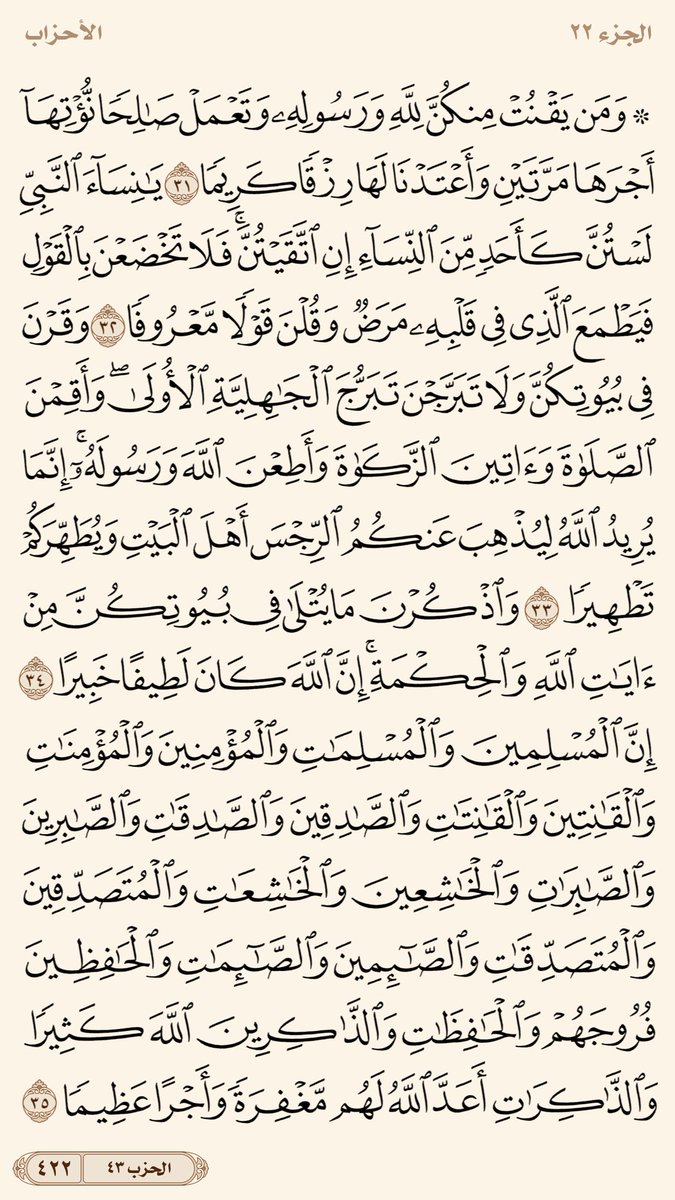 الجزء ٢٢
الأحزاب
۞ وَمَن يَقْنُتْ مِنكُنَّ لِلَّهِ وَرَسُولِهِۦ وَتَعْمَلْ صَٰلِحًا نُّؤْتِهَآ
أَجْرَهَا مَرَّتَيْنِ وَأَعْتَدْنَا لَهَا رِزْقًا كَرِيمًا ٣١ يَٰنِسَآءَ ٱلنَّبِيِّ
لَسْتُنَّ كَأَحَدٍ مِّنَ ٱلنِّسَآءِ إِنِ ٱتَّقَيْتُنَّۚ فَلَا تَخْضَعْنَ بِٱلْقَوْلِ
فَيَطْمَعَ ٱلَّذِى فِى قَلْبِهِۦ مَرَضٌ وَقُلْنَ قَوْلًا مَّعْرُوفًا ٣٢ وَقَرْنَ
فِى بُيُوتِكُنَّ وَلَا تَبَرَّجْنَ تَبَرُّجَ ٱلْجَٰهِلِيَّةِ ٱلْأُولَىٰۖ وَأَقِمْنَ
ٱلصَّلَوٰةَ وَءَاتِينَ ٱلزَّكَوٰةَ وَأَطِعْنَ ٱللَّهَ وَرَسُولَهُۥٓۚ إِنَّمَا
يُرِيدُ ٱللَّهُ لِيُذْهِبَ عَنكُمُ ٱلرِّجْسَ أَهْلَ ٱلْبَيْتِ وَيُطَهِّرَكُمْ
تَطْهِيرًا ٣٣ وَٱذْكُرْنَ مَا يُتْلَىٰ فِى بُيُوتِكُنَّ مِنْ
ءَايَٰتِ ٱللَّهِ وَٱلْحِكْمَةِۚ إِنَّ ٱللَّهَ كَانَ لَطِيفًا خَبِيرًا ٣٤
إِنَّ ٱلْمُسْلِمِينَ وَٱلْمُسْلِمَٰتِ وَٱلْمُؤْمِنِينَ وَٱلْمُؤْمِنَٰتِ
وَٱلْقَٰنِتِينَ وَٱلْقَٰنِتَٰتِ وَٱلصَّٰدِقِينَ وَٱلصَّٰدِقَٰتِ وَٱلصَّٰبِرِينَ
وَٱلصَّٰبِرَٰتِ وَٱلْخَٰشِعِينَ وَٱلْخَٰشِعَٰتِ وَٱلْمُتَصَدِّقِينَ
وَٱلْمُتَصَدِّقَٰتِ وَٱلصَّٰٓئِمِينَ وَٱلصَّٰٓئِمَٰتِ وَٱلْحَٰفِظِينَ
فُرُوجَهُمْ وَٱلْحَٰفِظَٰتِ وَٱلذَّٰكِرِينَ ٱللَّهَ كَثِيرًا
وَٱلذَّٰكِرَٰتِ أَعَدَّ ٱللَّهُ لَهُم مَّغْفِرَةً وَأَجْرًا عَظِيمًا ٣٥
الحزب ٤٣
٤٢٢